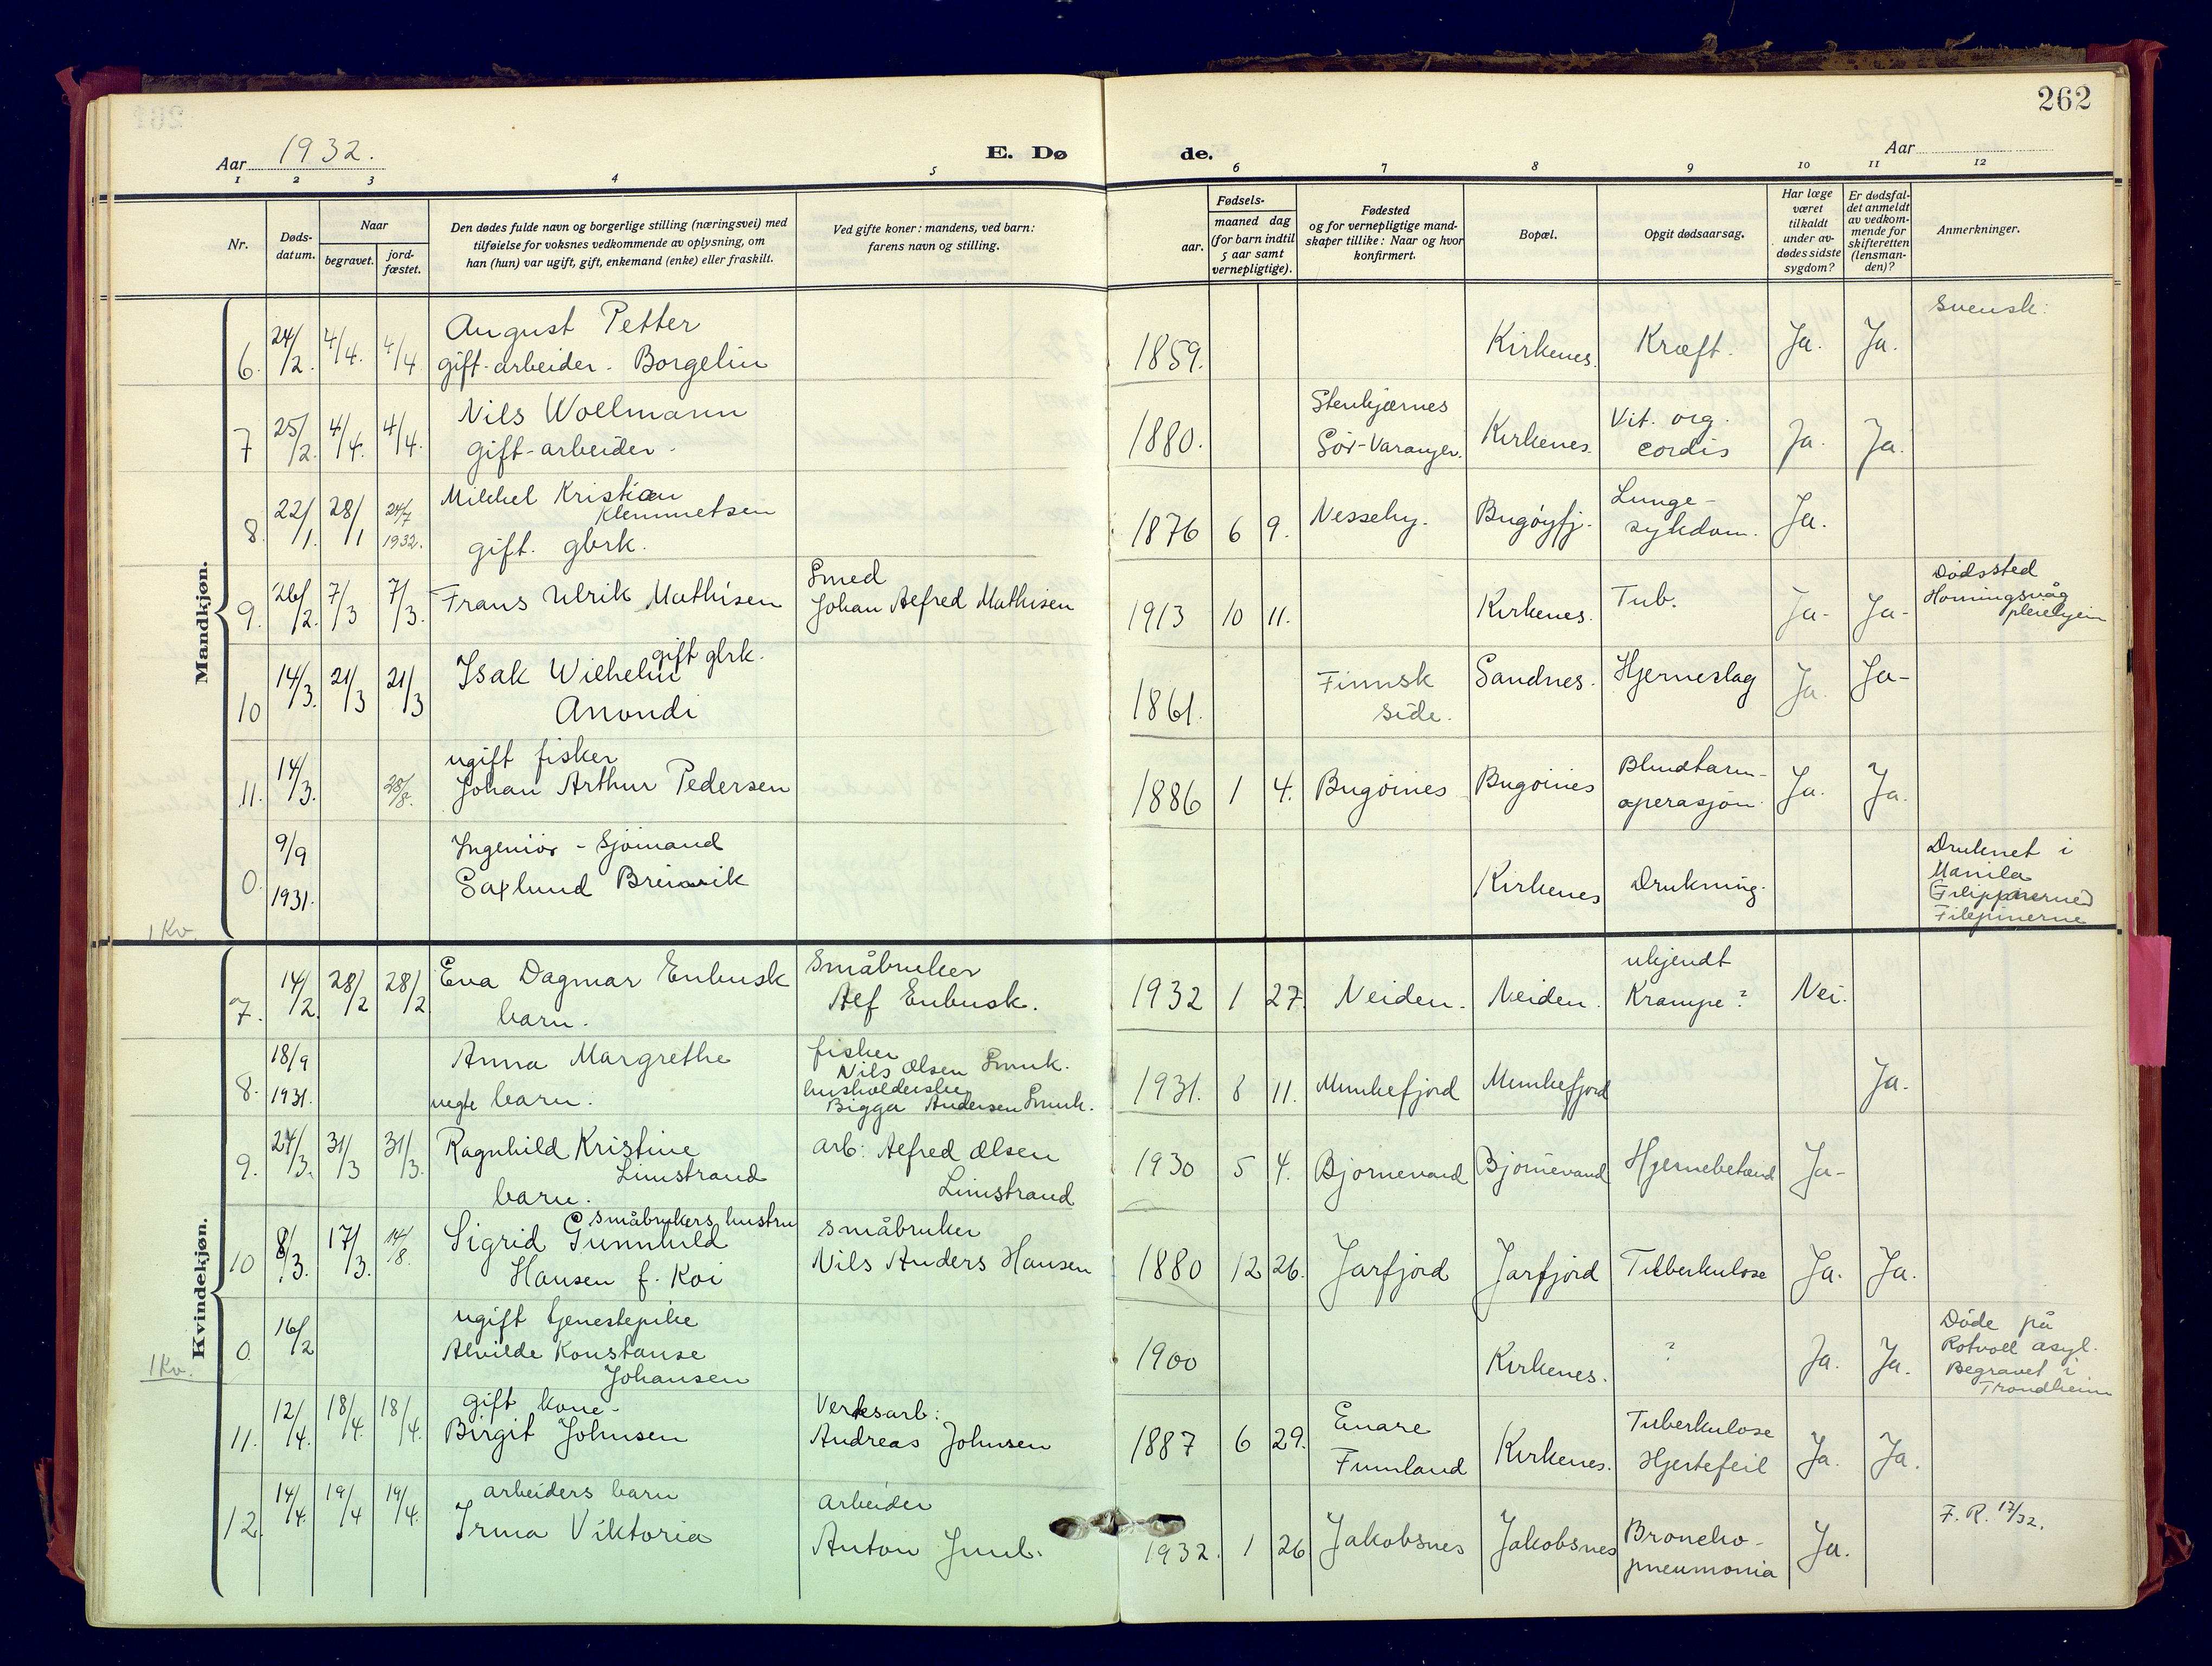 262
Aar 1932.
E. Dø de.
Aar
1 2 3 4 5 6 7 8 9 10 11 12
Nr.
Døds-
datum.
Naar
begravet.
jord-
fæstet.
Den dødes fulde navn og borgerlige stilling (næringsvei) med
tilføielse for voksnes vedkommende av oplysning, om
han (hun) var ugift, gift, enkemand (enke) eller fraskilt.
Ved gifte koner: mandens, ved barn:
farens navn og stilling.
Fødsels-
aar.
maaned dag
(for barn indtil
5 aar samt
vernepligtige).
Fødested
og for vernepligtige mand-
skaper tillike: Naar og hvor
konfirmert.
Bopæl.
Opgit dødsaarsag.
Har læge
været
tilkaldt
under av-
dødes sidste
sygdom?
Er dødsfal-
det anmeldt
av vedkom-
mende for
skifteretten
(lensman-
den)?
Anmerkninger.
Mandkjøn.
6. 24/2. 4/4. 4/4
August Petter
gift-arbeider. Borgelin
1859. Kirkenes. Kræft. Ja. Ja.
svensk:
7 25/2. 4/4. 4/4.
Nils Wollmann
gift-arbeider.
1880.
Stenkjærnes
Sør-Varanger.
Kirkenes.
Vit. org.
cordis
Ja. Ja.
8. 22/1. 28/1 24/7
1932.
Mikkel Kristian
Klemmetsen
gift. gbrk.
1876 6 9. Nesseby. Bugøyfj.
Lunge-
sykdom.
Ja.
9. 26/2. 7/3 7/3.
Frans Ulrik Mathisen
Smed
Johan Alfred Mathisen
1913 10 11. Kirkenes. Tub. Ja- Ja-
Dødssted
Honningsvåg
pleiehjem
10 14/3. 21/3 21/3
gift gbrk.
Isak Wilhelm
Anondi
1861.
Finnsk
side.
Sandnes. Hjerneslag Ja. Ja-
11. 14/3. 28/8.
ugift fisker
Johan Arthur Pedersen
1886 1 4. Bugøines Bugøines
Blindtarm-
operasjon.
Ja. Ja.
0. 9/9
1931.
Ingeniør - sjømand
Saxlund Breivik
Kirkenes Drukning.
Druknet i
Manila
(Filippinerne)
Filepinerne
1 Kv.
Kvindekjøn.
7. 14/2. 28/2 28/2
Eva Dagmar Enbusk
barn.
Småbruker
Alf Enbusk.
1932 1 27. Neiden. Neiden.
ukjendt
Krampe?
Nei.
8. 18/9
1931.
Anna Margrethe
uegte barn.
fisker
Nils Olsen Smuk.
husholderske
Bigga Andersen Smuk.
1931. 8 11. Munkefjord Munkefjord Ja.
9. 24/3. 31/3 31/3.
Ragnhild Kristine
Limstrand
barn.
arb: Alfred Olsen
Limstrand
1930 5 4. Bjørnevand Bjørnevand Hjernebetænd Ja-
10 8/3. 17/3. 14/8.
småbrukers hustru
Sigrid Gunnhild
Hansen f. Koi
småbruker
Nils Anders Hansen
1880 12 26. Jarfjord Jarfjord Tuberkulose Ja. Ja.
1 Kv.
0. 16/2
ugift tjenestepike
Alvilde Konstanse
Johansen
1900 Kirkenes. ? Ja. Ja.
Døde på
Rotvoll asyl.
Begravet i
Trondheim
11. 12/4. 18/4. 18/4.
gift kone-
Birgit Johnsen
Verksarb:
Andreas Johnsen
1887 6 29.
Enare
Finnland
Kirkenes.
Tuberkulose
Hjertefeil
Ja. Ja.
12. 14/4. 19/4 19/4.
arbeiders barn
Irma Viktoria
arbeider
Anton
1932. 1 26 Jakobsnes Jakobsnes
Broncho-
pneumonia
Ja.
F. R. 17/32.